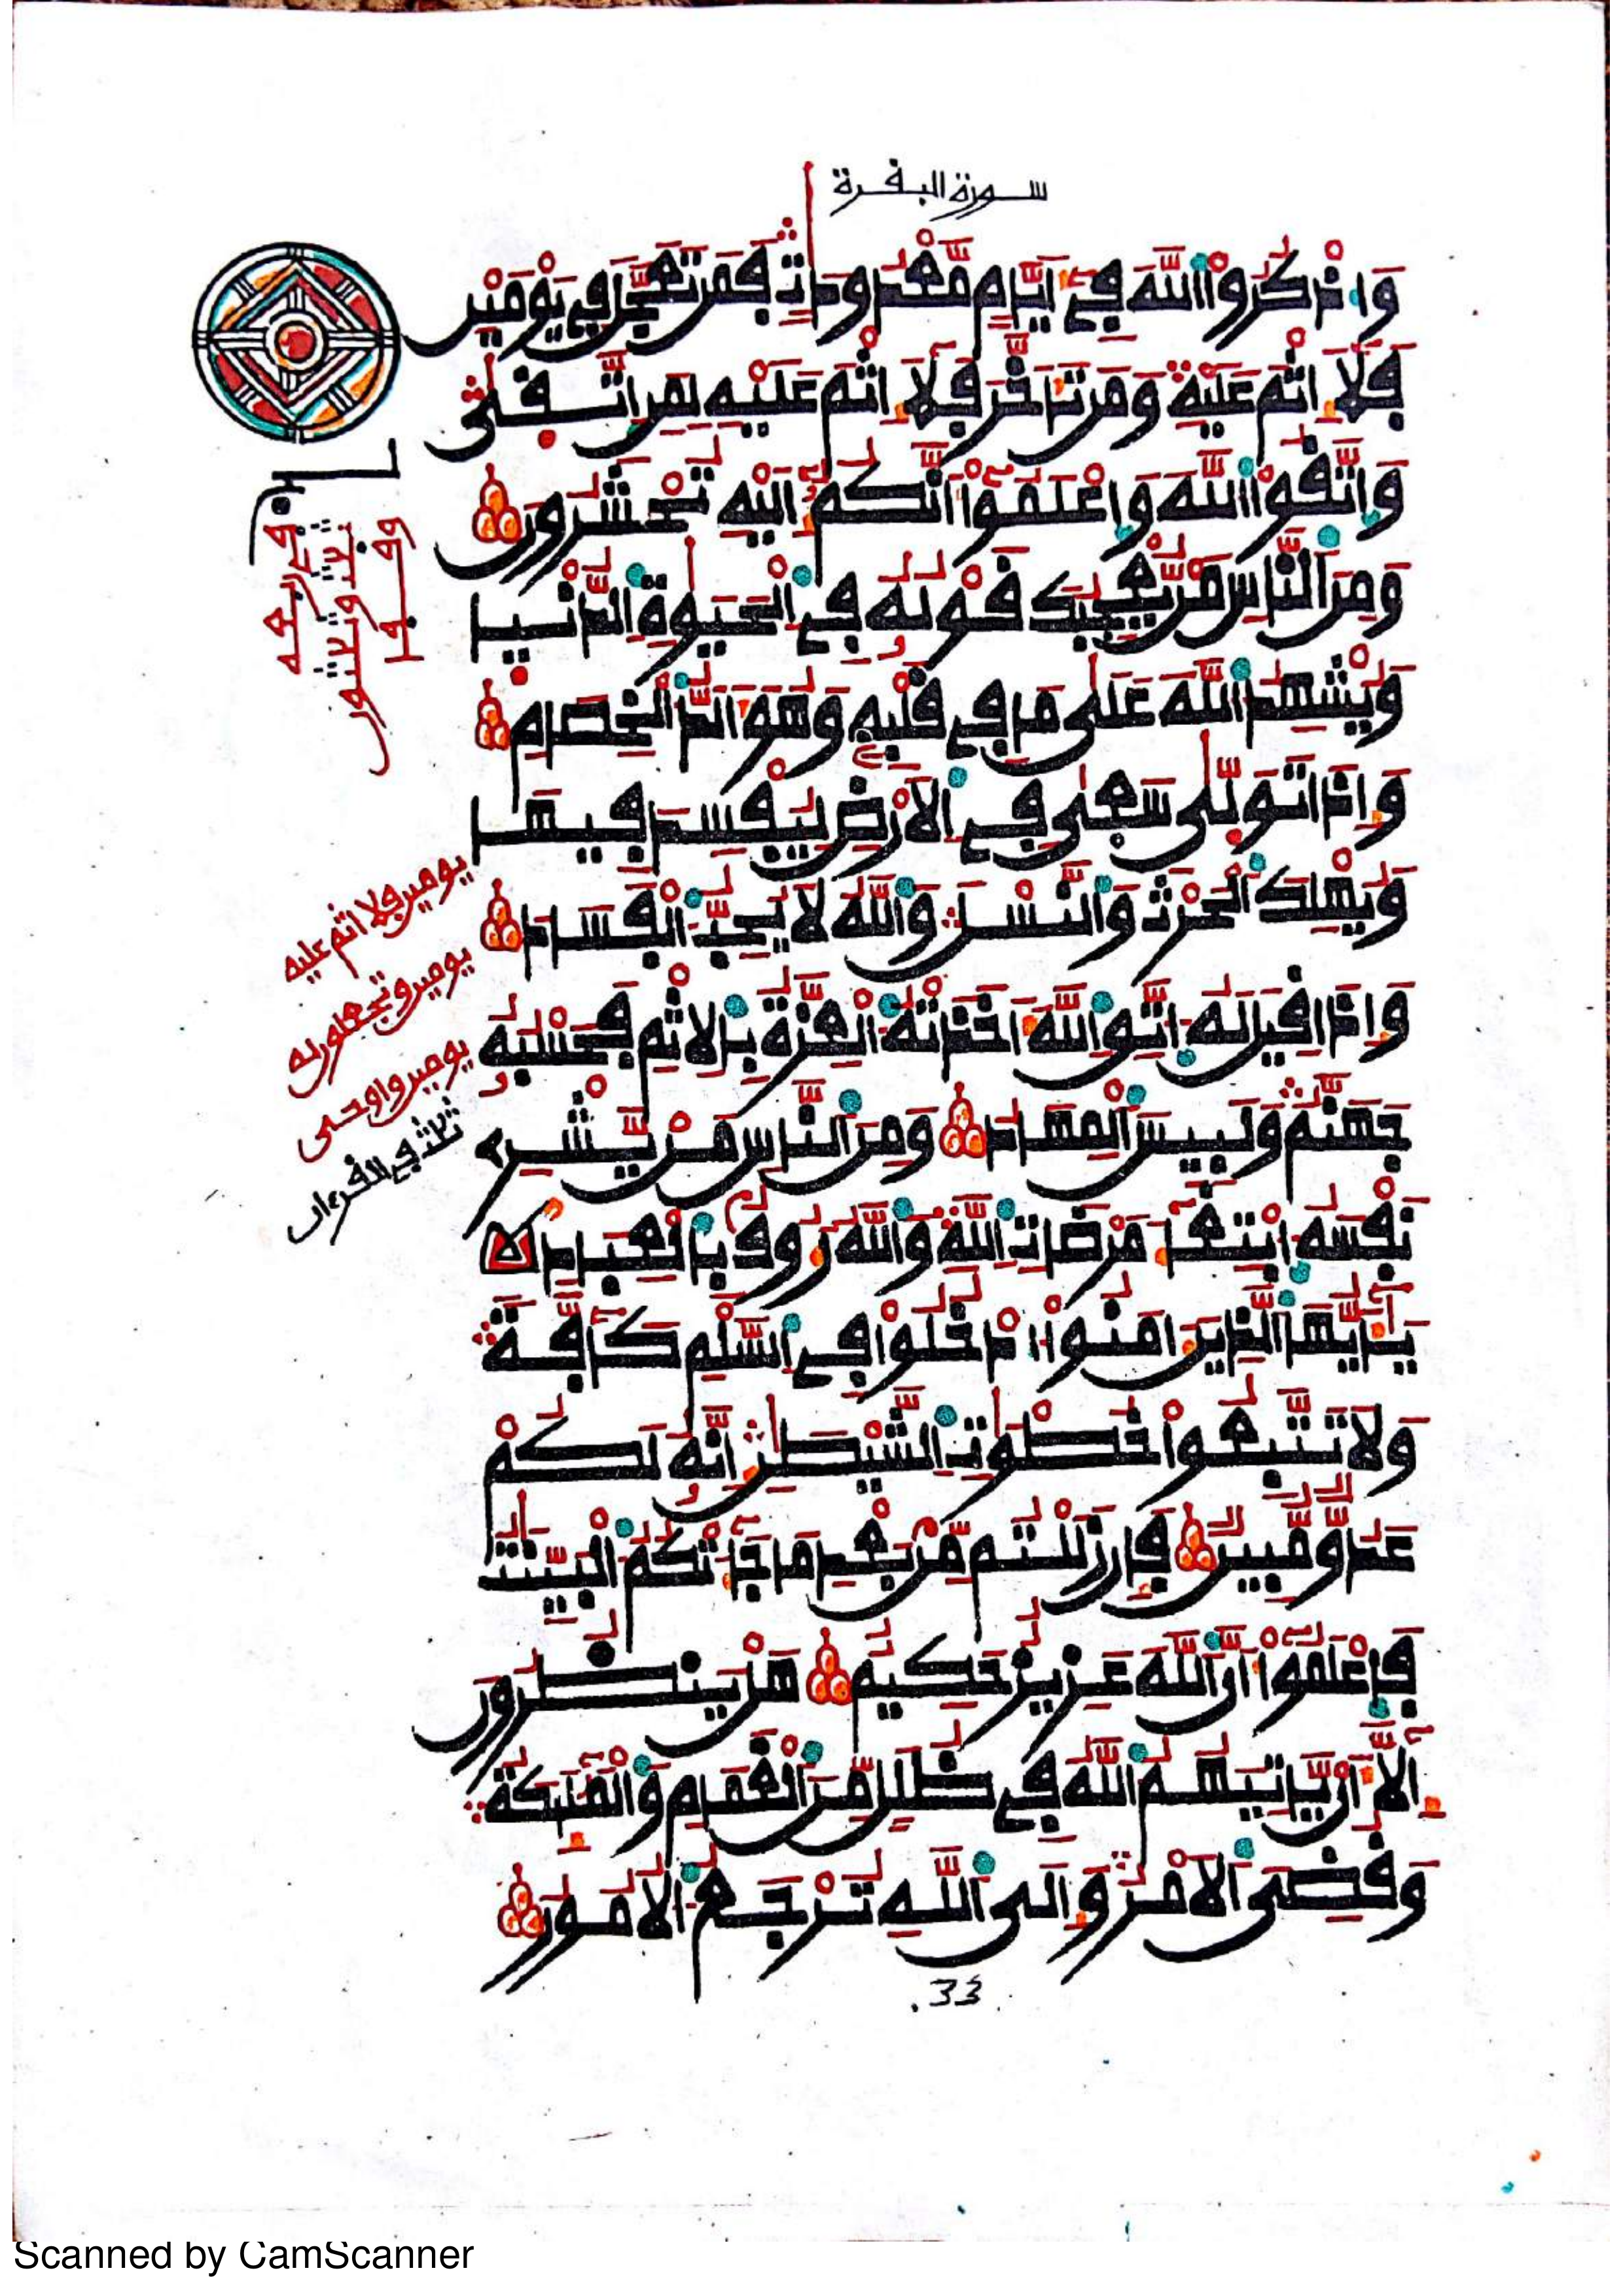 سورة البقرة
وَاذْكُرُوا۟ اللَّهَ فِےٓ أَيَّامٍ مَّعْدُودَاتٍ فَمَن تَعَجَّلَ فِے يَوْمَيْنِ
فَلَآ إِثْمَ عَلَيْهِ وَمَن تَأَخَّرَ فَلَآ إِثْمَ عَلَيْهِ لِمَنِ اتَّقىٰ
وَاتَّقُوا۟ اللَّهَ وَاعْلَمُوٓا۟ أَنَّكُمُۥٓ إِلَيْهِ تُحْشَرُونَ
وَمِنَ النَّاسِ مَنْ يُّعْجِبُكَ قَوْلُهُۥ فِے الْحَيَوٰةِ الدُّنْيَا
وَيُشْهِدُ اللَّهَ عَلَىٰ مَا فِے قَلْبِهِۦ وَهُوَ أَلَدُّ الْخِصَامِ
وَإِذَا تَوَلَّىٰ سَعَىٰ فِے الَارْضِ لِيُفْسِدَ فِيهَا
وَيُهْلِكَ الْحَرْثَ وَالنَّسْلَ وَاللَّهُ لَا يُحِبُّ الْفَسَادَ
وَإِذَا قِيلَ لَهُ اتَّقِ اللَّهَ أَخَذَتْهُ الْعِزَّةُ بِالِاثْمِ فَحَسْبُهُۥ
جَهَنَّمُ وَلَبِيسَ الْمِهَادُ وَمِنَ النَّاسِ مَنْ يَّشْرِے
نَفْسَهُ ابْتِغَآءَ مَرْضَاتِ اللَّهِ وَاللَّهُ رَءُوفٌۢ بِالْعِبَادِ
يَٰٓأَيُّهَا الَّذِينَ ءَامَنُوا۟ ادْخُلُوا۟ فِے السَّلْمِ كَآفَّةً
وَلَا تَتَّبِعُوا۟ خُطْوَٰتِ الشَّيْطَٰنِ إِنَّهُۥ لَكُمْ
عَدُوٌّ مُّبِينٌ فَإِن زَلَلْتُم مِّنۢ بَعْدِ مَا جَآءَتْكُمُ الْبَيِّنَٰتُ
فَاعْلَمُوٓا۟ أَنَّ اللَّهَ عَزِيزٌ حَكِيمٌ هَلْ يَنظُرُونَ
إِلَّآ أَنْ يَّاتِيَهُمُ اللَّهُ فِے ظُلَلٍ مِّنَ الْغَمَامِ وَالْمَلَٰٓئِكَةُ
وَقُضِىَ الَامْرُ وَإِلَى اللَّهِ تُرْجَعُ الُامُورُ
يومين فلا اثم عليه
يومين وتجعلون له
يومين واوحى
ثلاث في القرءان
.33.
Scanned by CamScanner